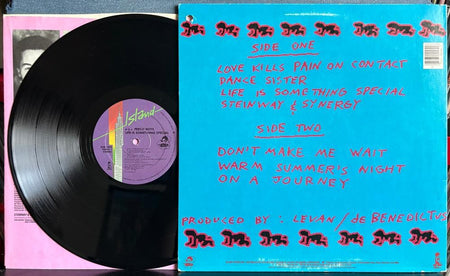 Island
N.Y.C. PEECH BOYS
LIFE IS SOMETHING SPECIAL
SIDE ONE
LOVE KILLS PAIN ON CONTACT
DANCE SISTER
LIFE IS SOMETHING SPECIAL
STEINWAY & SYNERGY
SIDE TWO
DON'T MAKE ME WAIT
WARM SUMMER'S NIGHT
ON A JOURNEY
PRODUCED BY : LEVAN/de BENEDICTUS